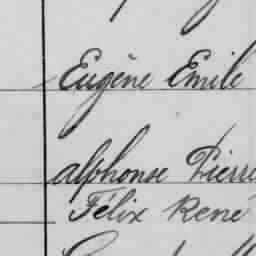 Eugène Emile
alphonse Pierre
Félix René